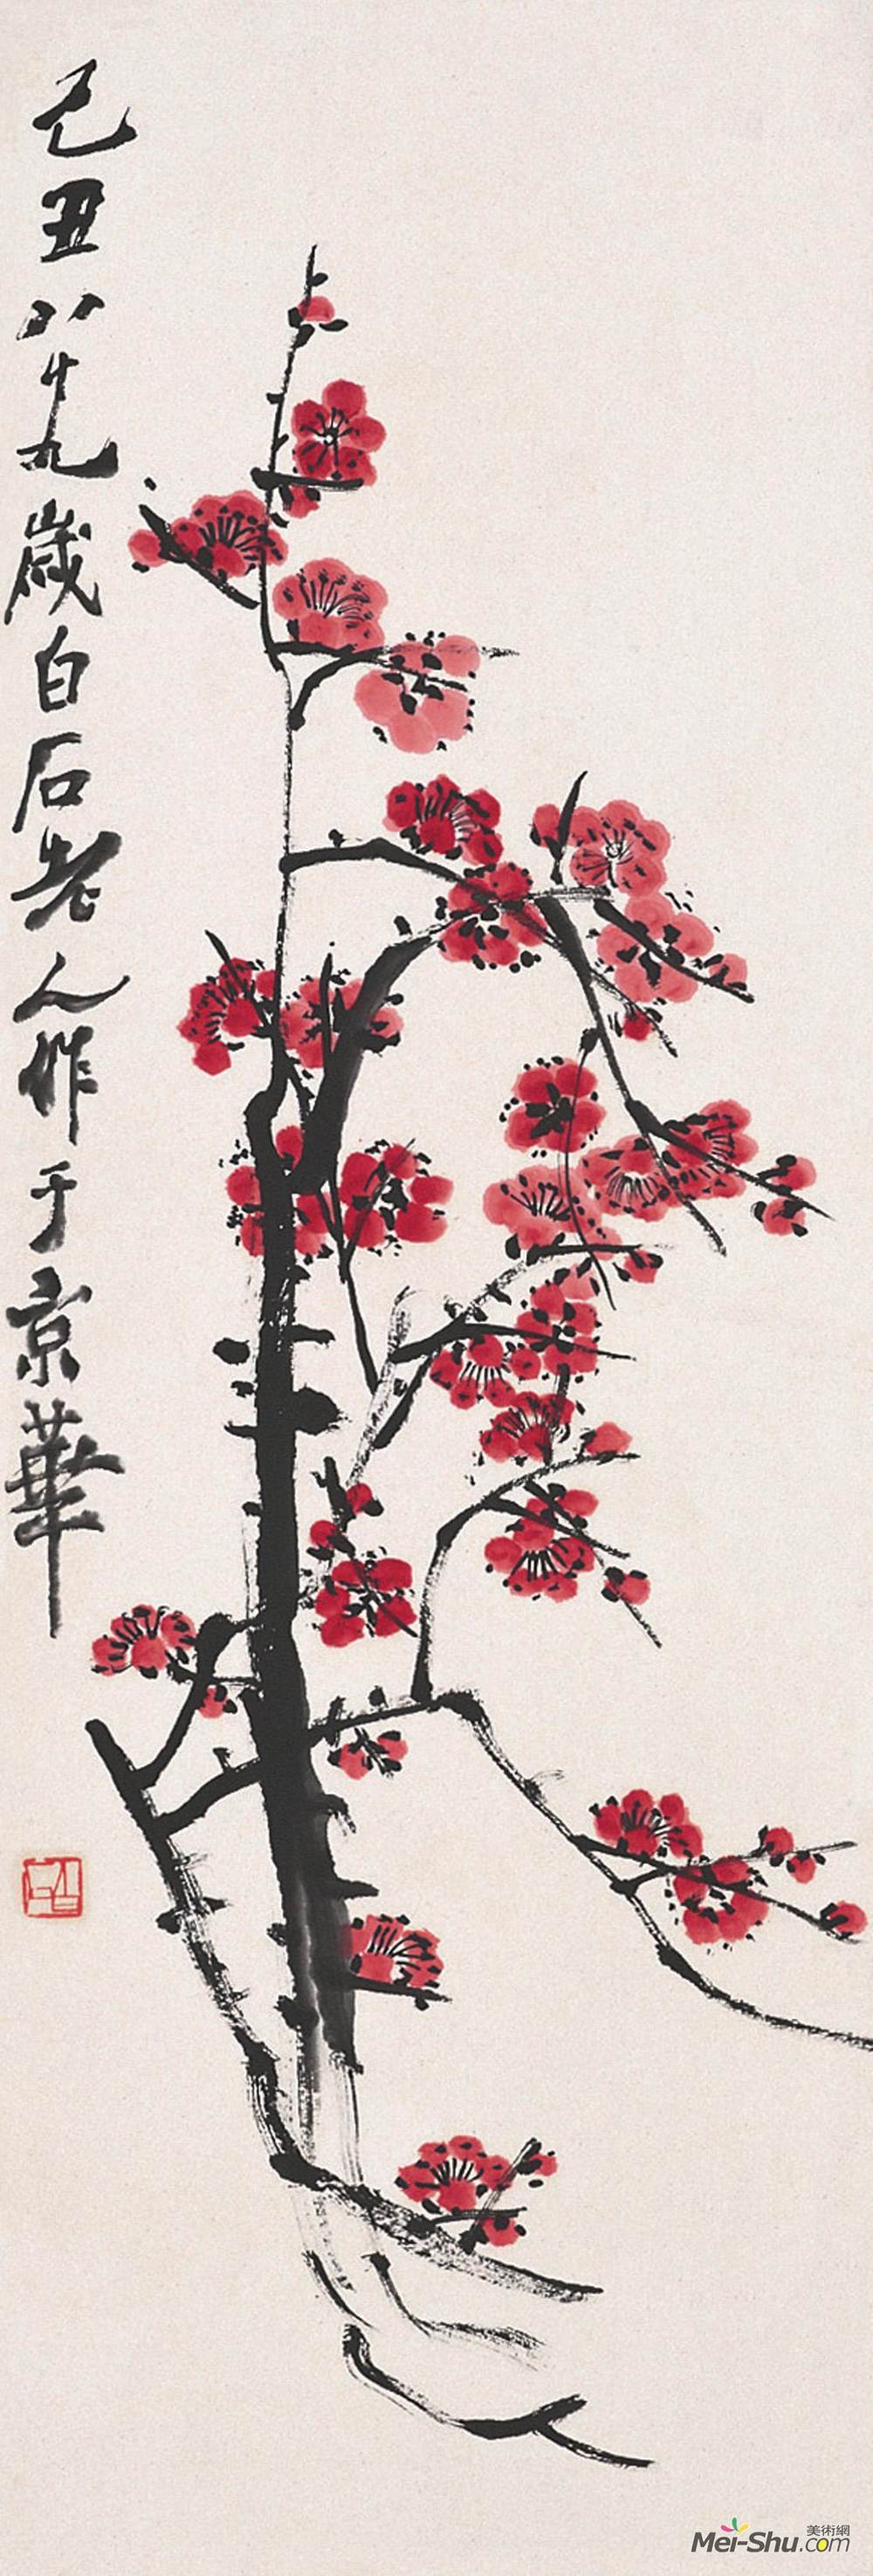 己丑八十九歲白石老人作于京華
美術網
Mei-Shu.com